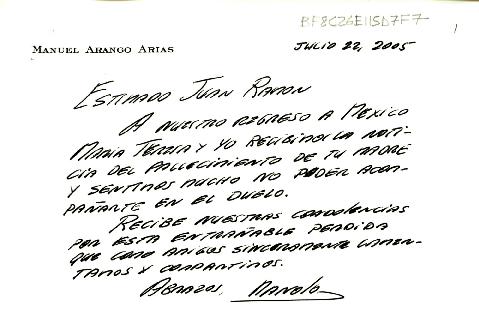 BF8C26E115D7F7
1
MANUEL ARANGO ARIAS
JULIO 22, 2005
ESTIMADO JUAN RAMON
A NUESTRO REGRESO A MEXICO
MARIA TERESA Y YO RECIBIMOS LA NOTI-
CIA DEL FALLECIMIENTO DE TU MADRE
Y SENTIMOS MUCHO NO PODER ACOM-
PAÑARTE EN EL DUELO.
RECIBE NUESTRAS CONDOLENCIAS
POR ESTA ENTRAÑABLE PERDIDA
QUE COMO AMIGOS SINCERAMENTE LAMEN-
TAMOS Y COMPARTIMOS.
ABRAZOS, MANOLO